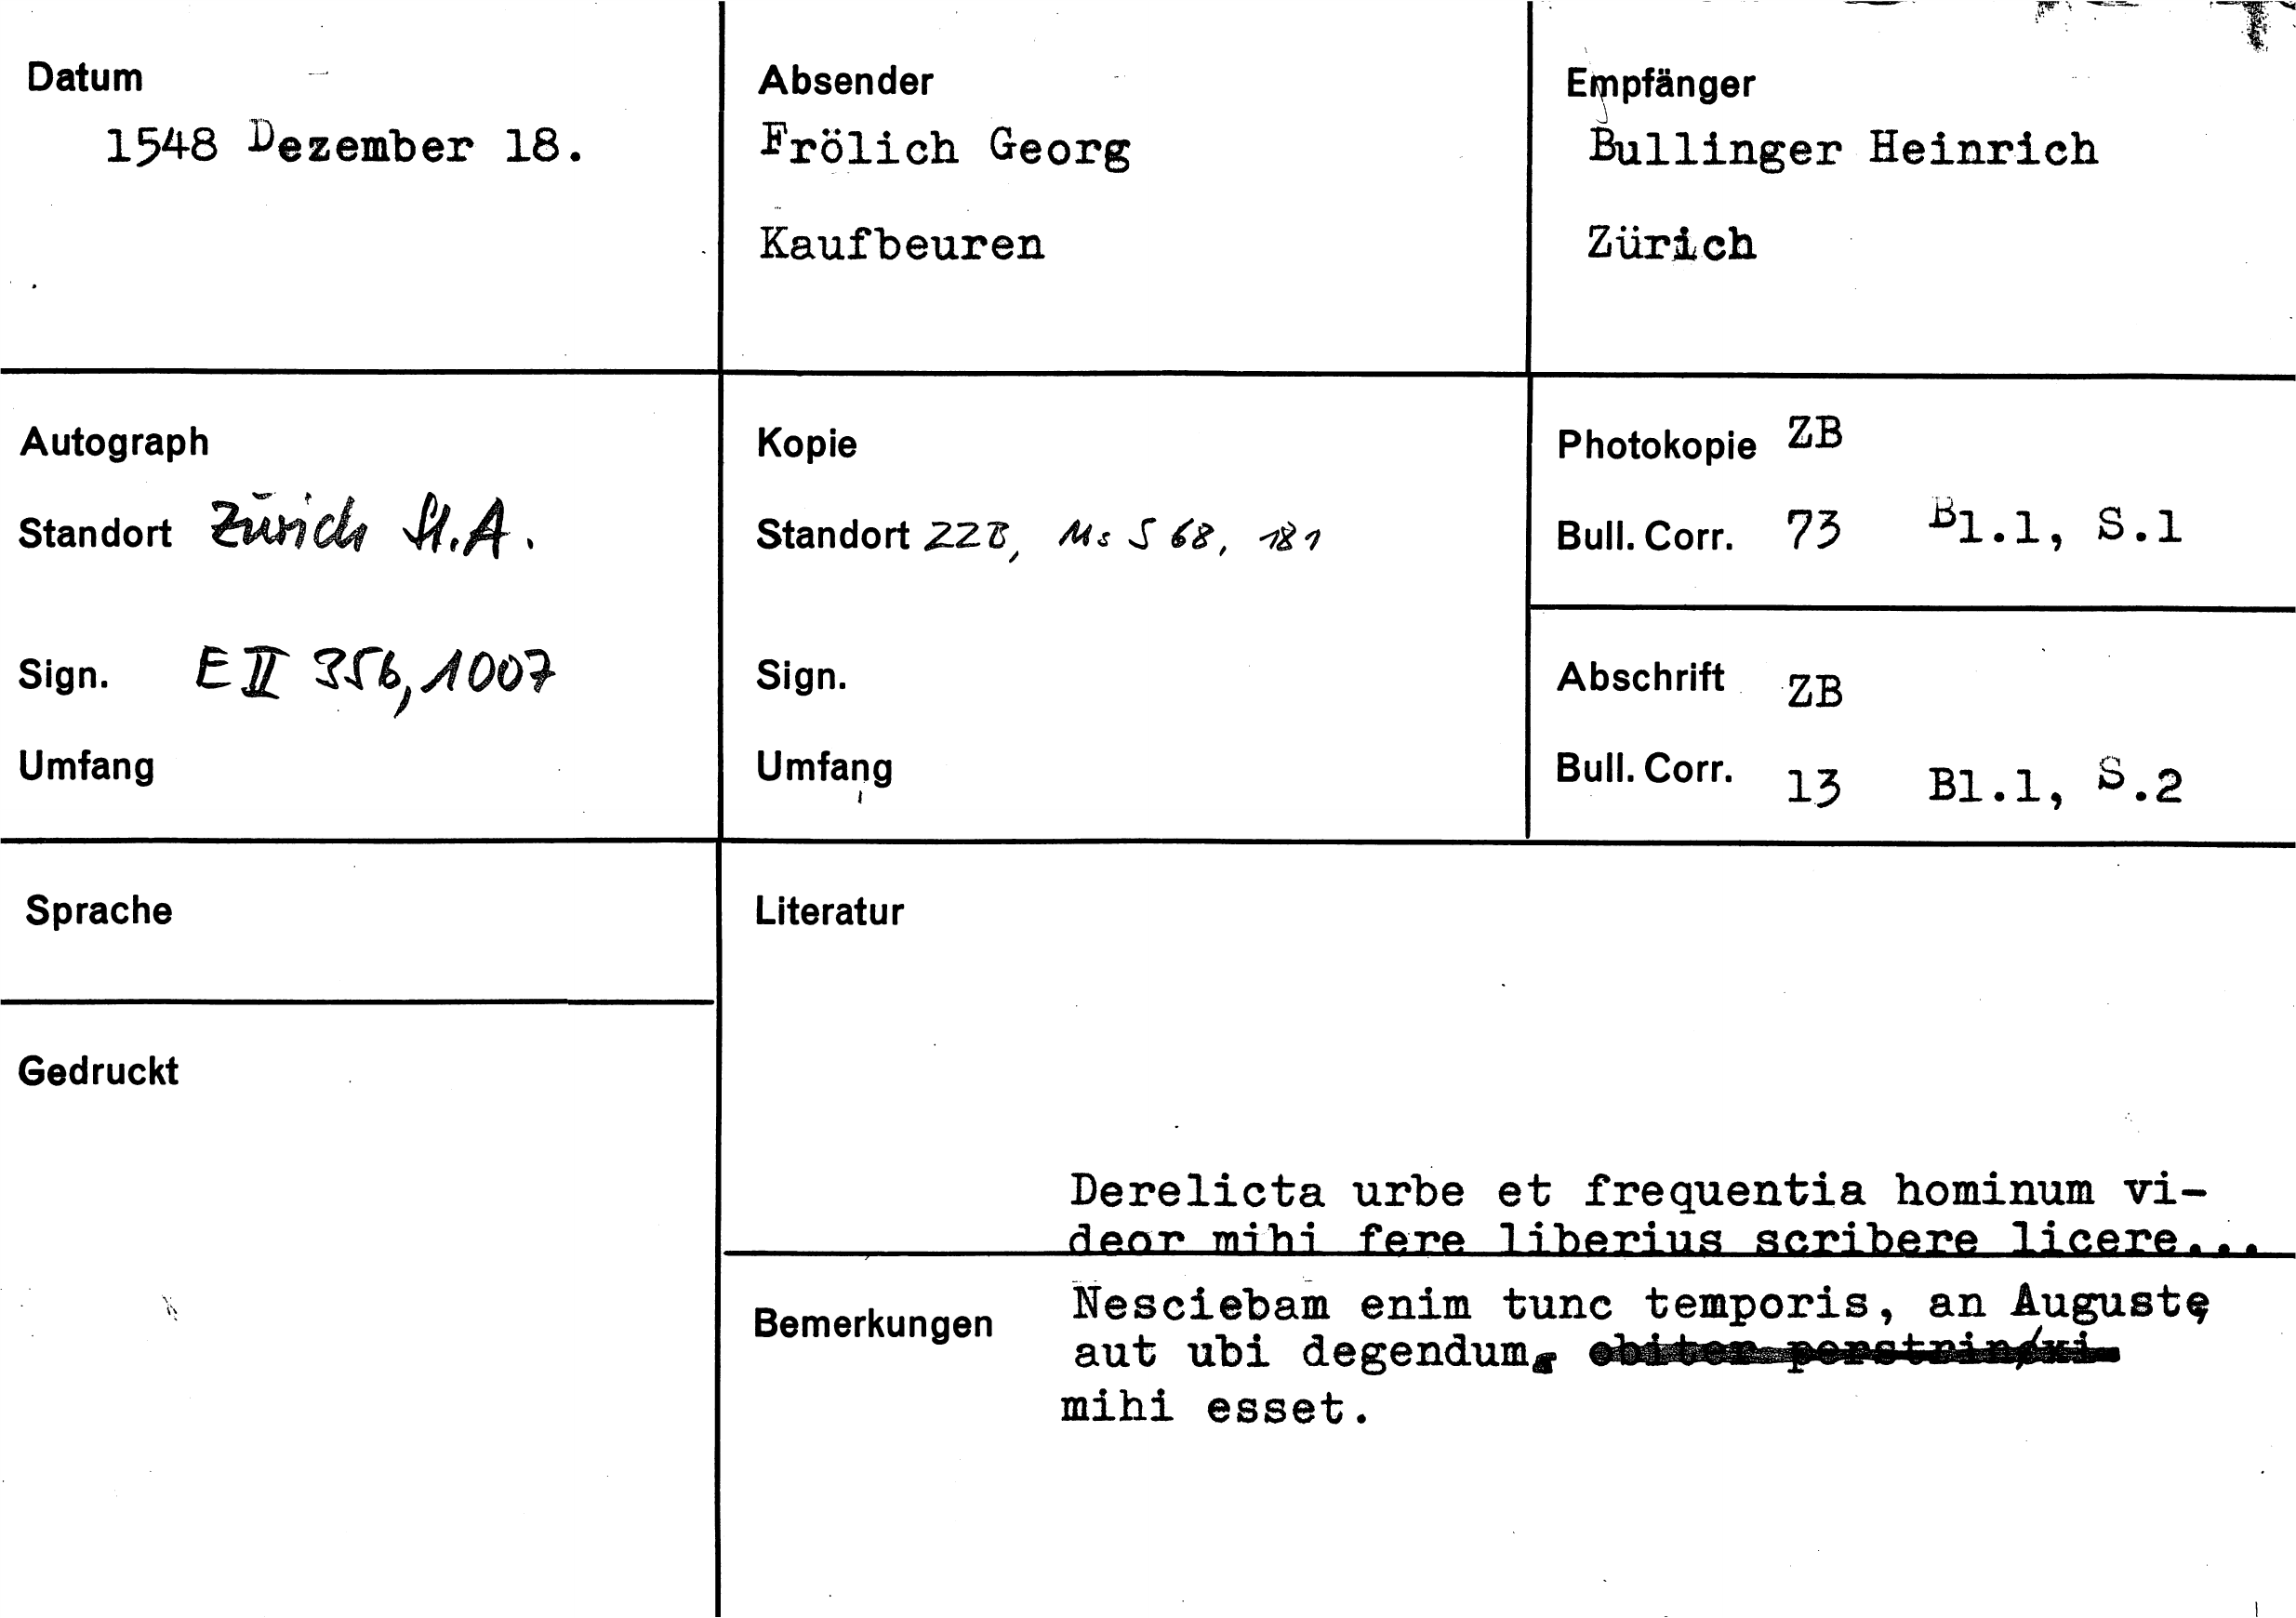 Datum
1548 Dezember 18.
Absender
Frölich Georg
Kaufbeuren
Empfänger
Bullinger Heinrich
Zürich
Autograph
Standort Zürich St.A.
Sign. E II 356, 1007
Umfang
Kopie
Standort ZZB, Ms S 68, 181
Sign.
Umfang
Photokopie ZB
Bull. Corr. 73 Bl.1, S.1
Abschrift ZB
Bull. Corr. 13 Bl.1, S.2
Sprache
Gedruckt
Literatur
Derelicta urbe et frequentia hominum vi-
deor mihi fere liberius scribere licere...
Bemerkungen
Nesciebam enim tunc temporis, an Augustę
aut ubi degendum,
mihi esset.